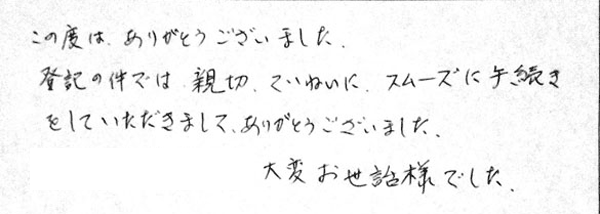 この度は、ありがとうございました。
登記の件では、親切、ていねいに、スムーズに手続き
をしていただきまして、ありがとうございました。
大変お世話様でした。